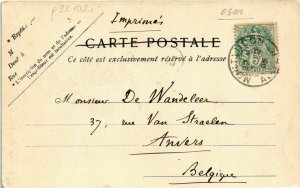 p 22102
03100
Imprimés
CARTE POSTALE
Ce côté est exclusivement réservé à l'adresse
M
Rue
MONTLUÇON
5
Monsieur De Wandeleer
37, rue Van Straelen
Anvers
Belgique